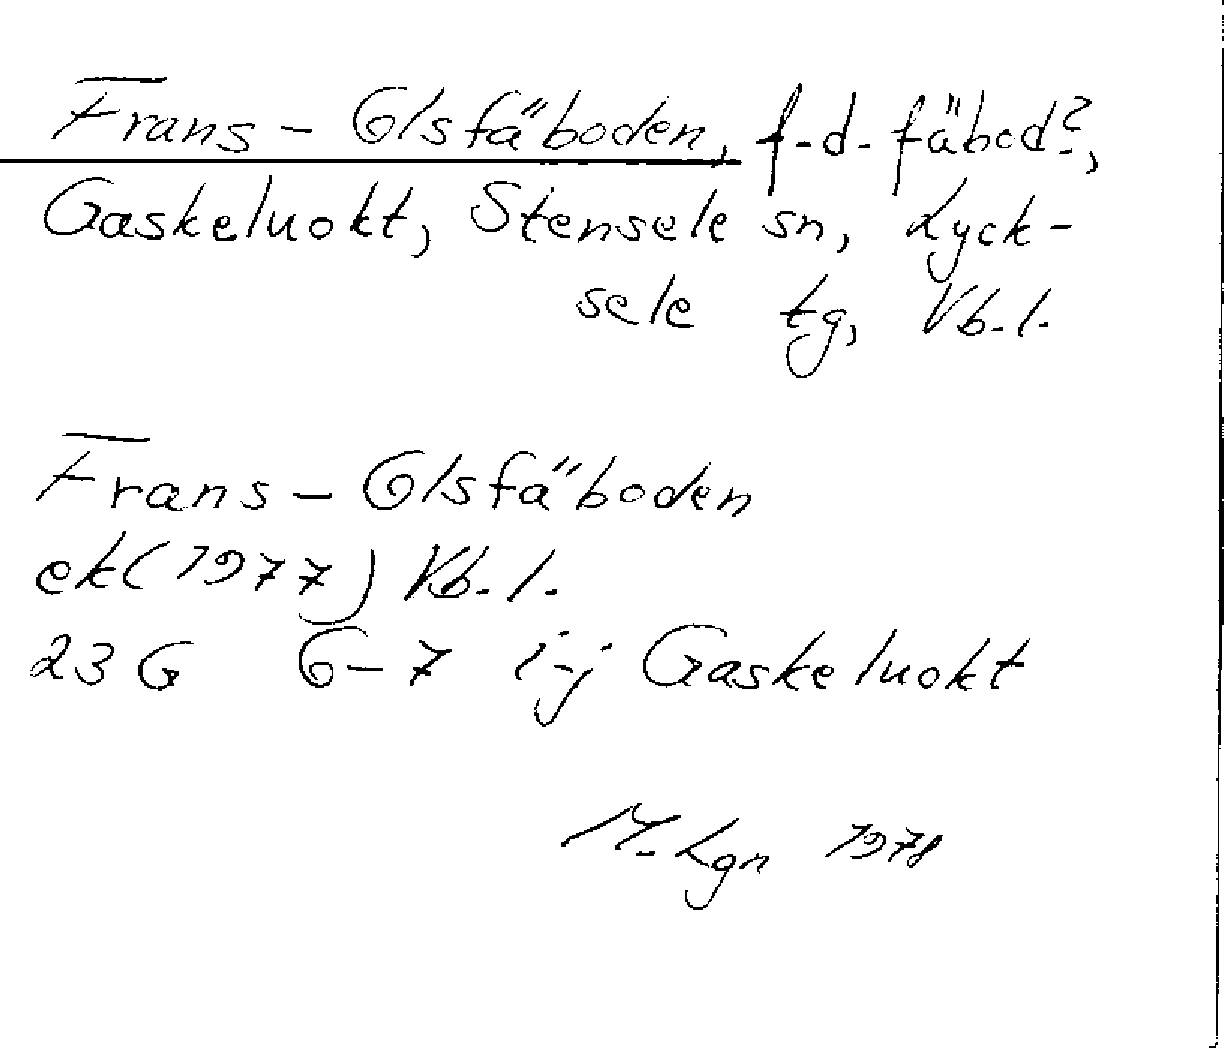 Frans-Olsfäboden, f.d. fäbod?,
Gaskeluokt, Stensele sn, Lyck-
sele tg, Vb.l.
Frans-Olsfäboden
ek(1977) Vb.l.
23 G 6-7 i-j Gaskeluokt
M. Lgn 1978